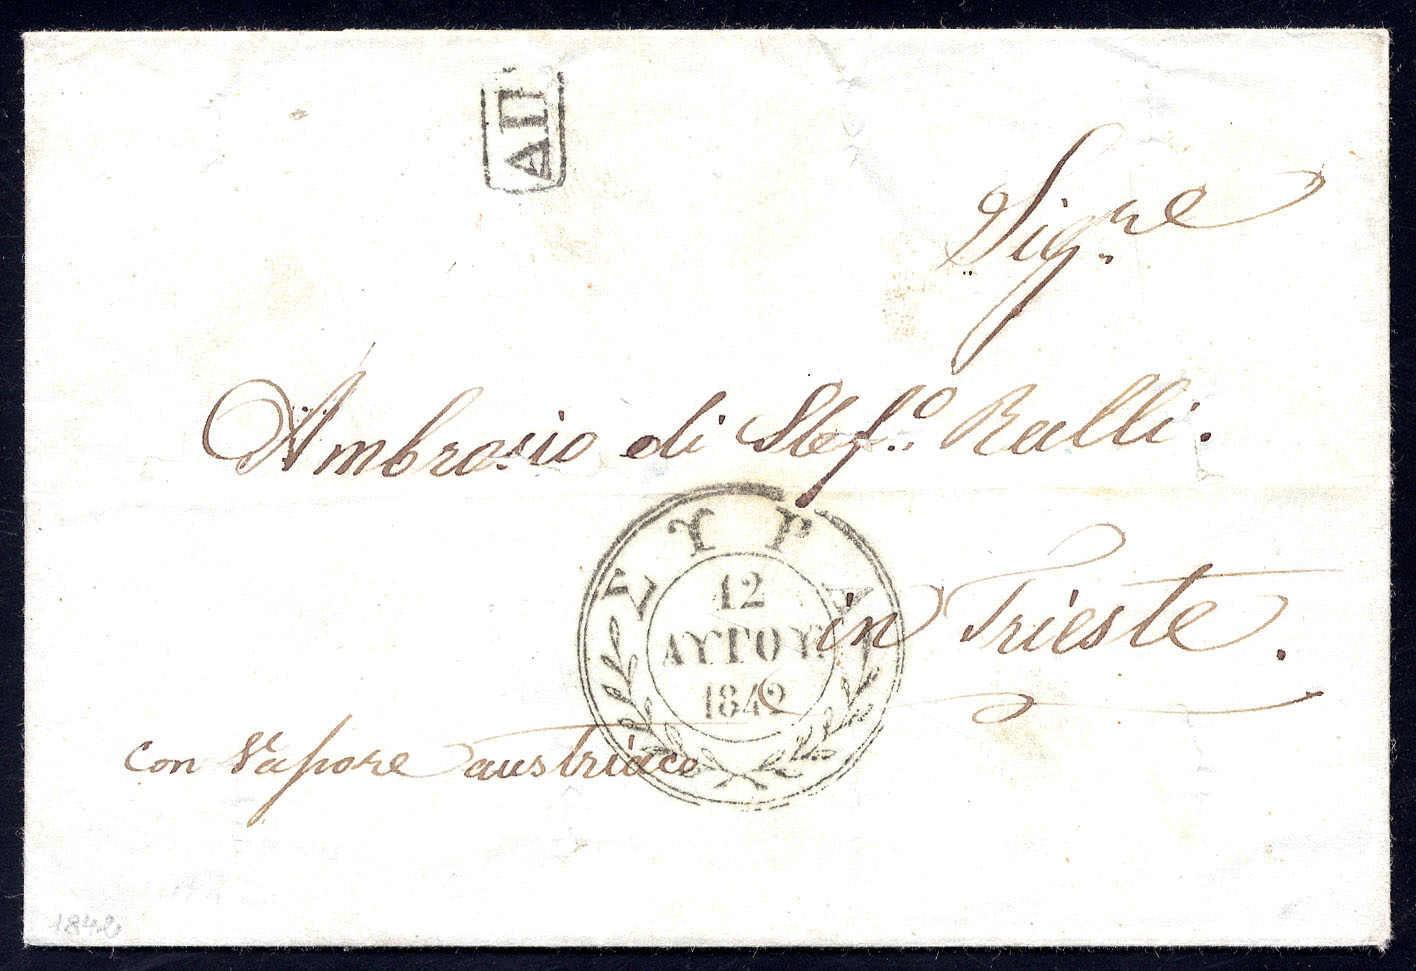 ΑΠ
Sig.re
Ambrosio di Stef.o Ralli.
ΣΥΡΑ
12
ΑΥΓΟΥΣ
1842
in Trieste.
con Vapore austriaco
1842